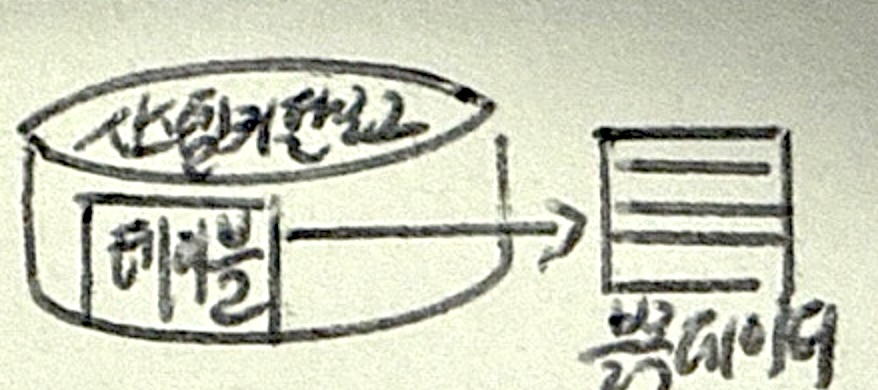 시스템카탈로그
테이블
블럭데이터